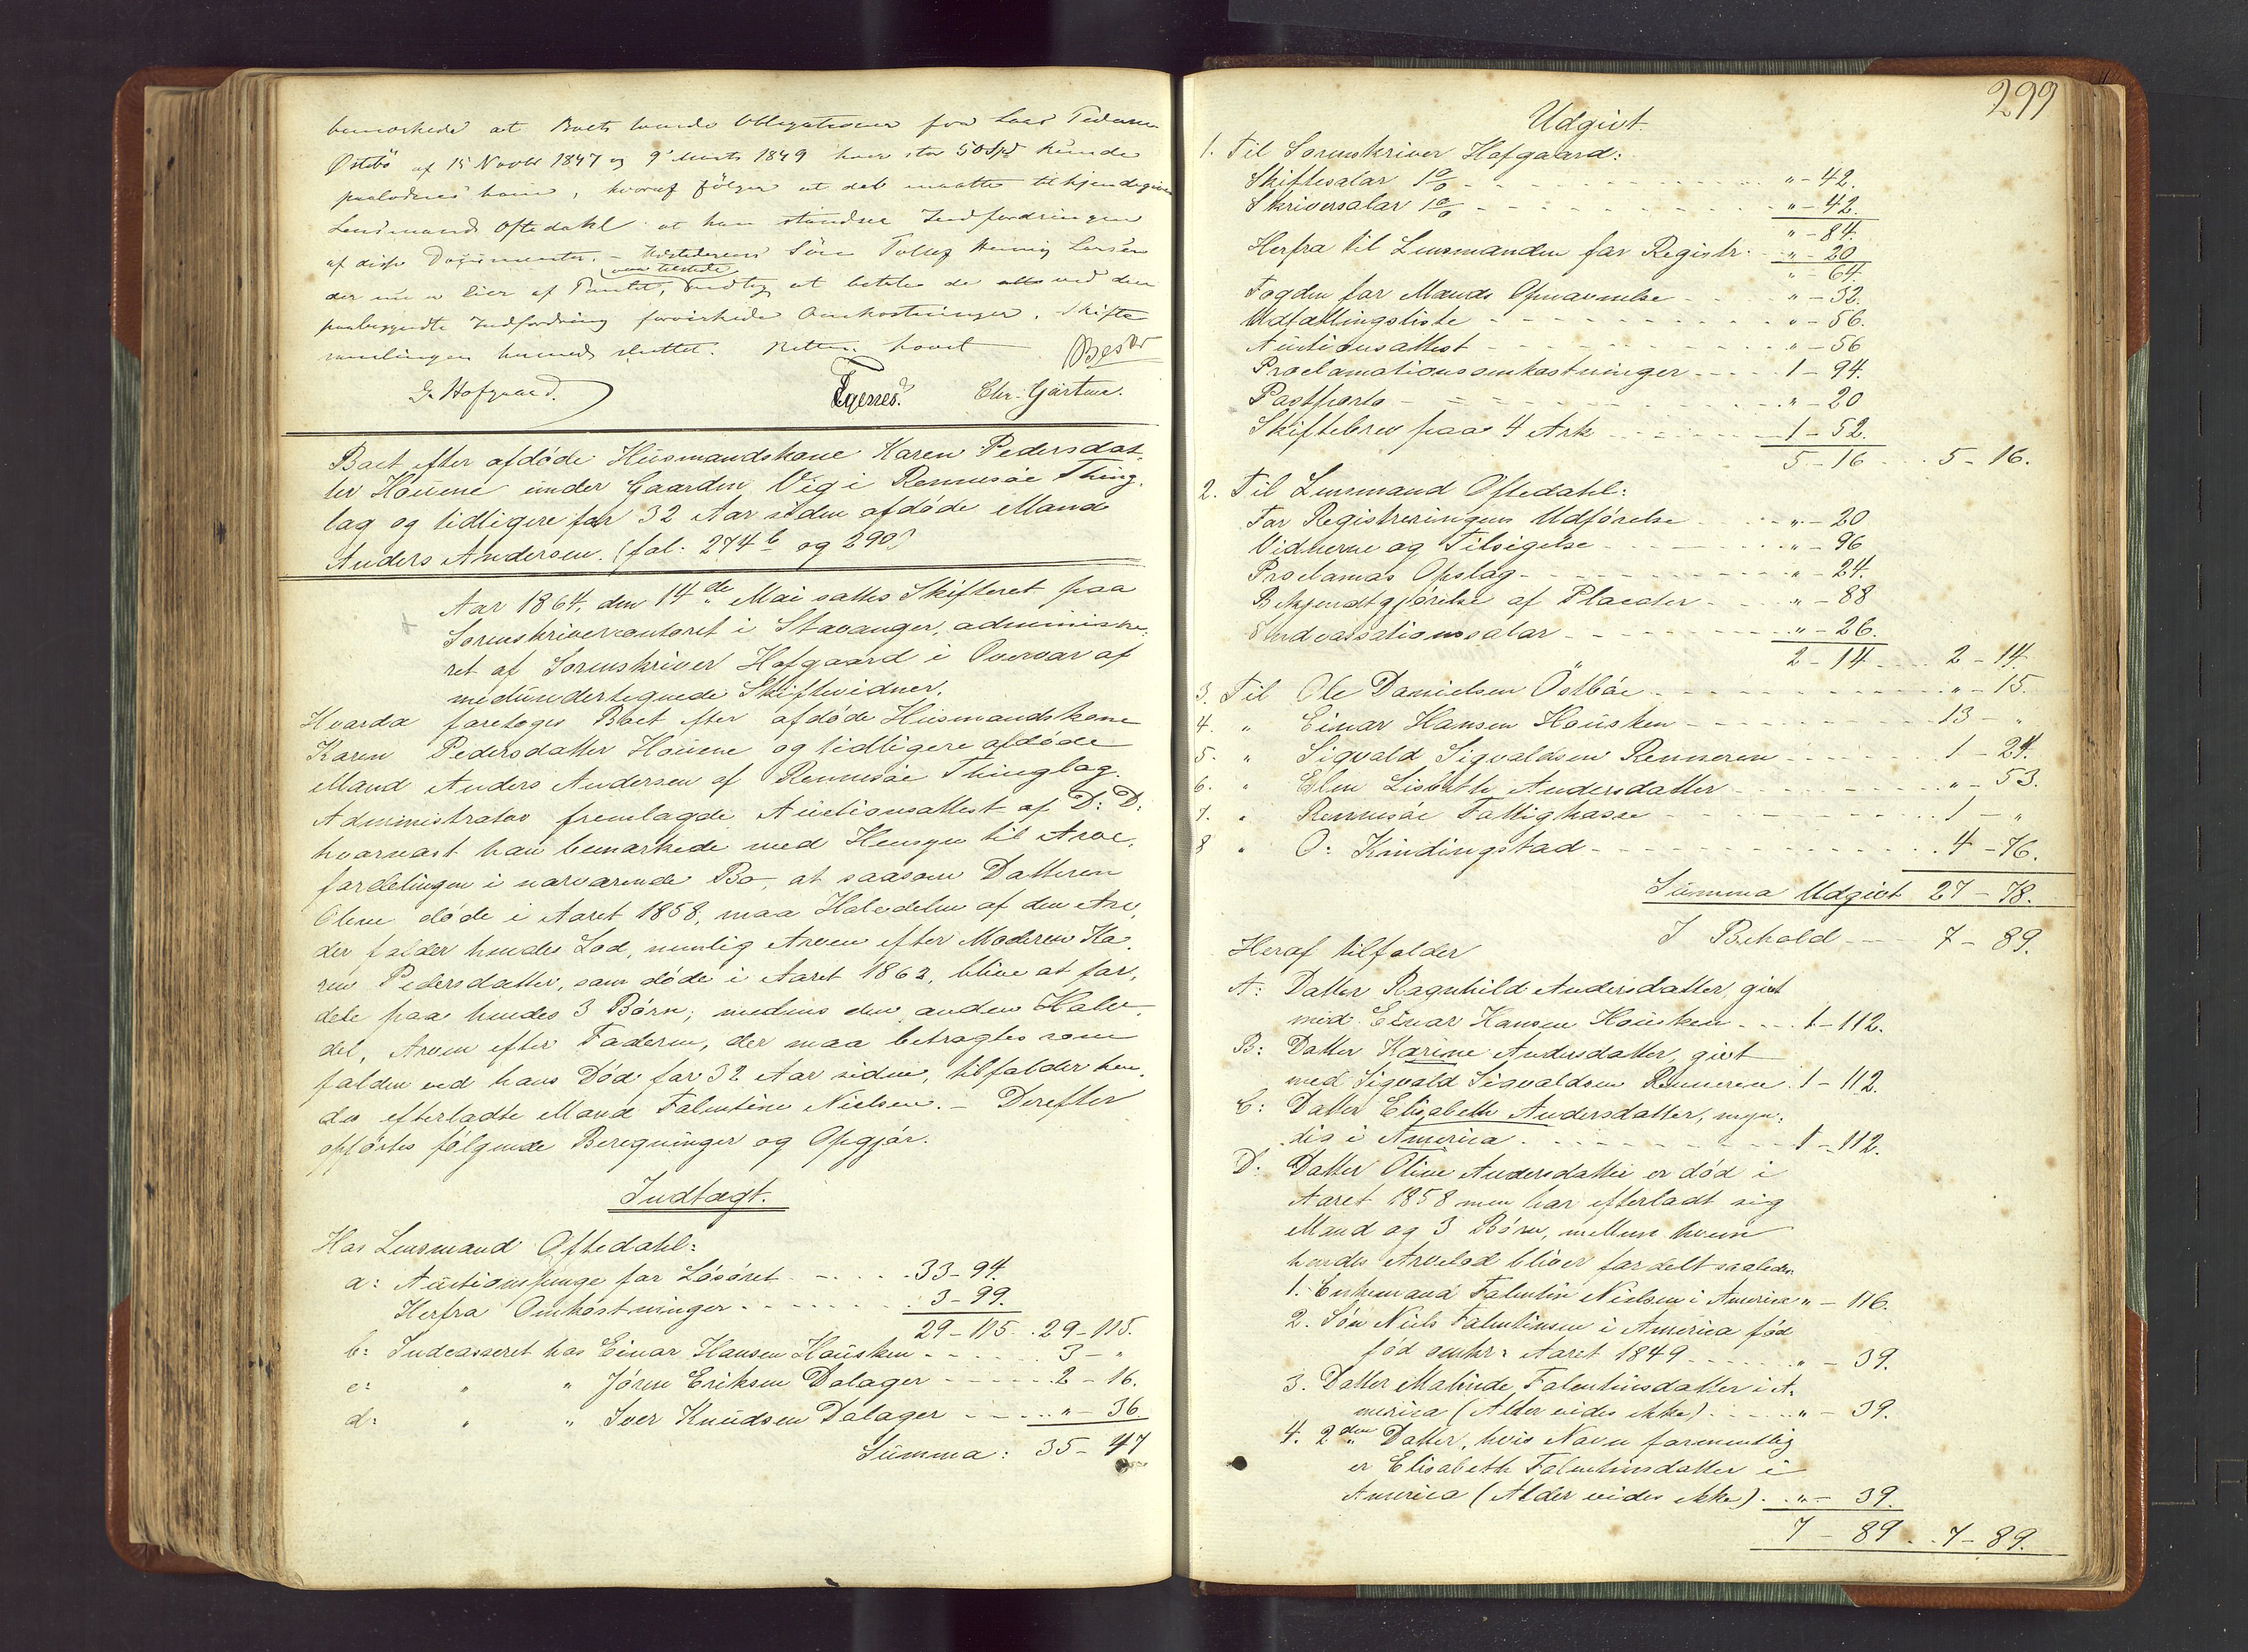 bemærkede at Boets Obligationer fra Lars
Østbö af 15 Novbr 1847 og 9 Marts 1849 hver stor 50 Spd kunde
hvoraf følger at det maatte tilkjendegives
Lensmand Oftedahl at han standser Indfordringen
af disse Documenter. – Søn Tollef Larsen
var tilstede
der nu er Eier af Pantet, at betale de ved den
paabegyndte Indfordring forvirkede Omkostninger. Skifte
samlingen hermed sluttet. Retten hævet
G. Hofgaard. Chr. Gärtner.
Boet efter afdöde Huusmandskone Karen Pedersdat-
ter Houene under Gaarden Vig i Rennesøe Thing-
lag og tidligere for 32 Aar siden afdöde Mand
Anders Andersen. (fol: 274 b og 290)
Aar 1864, den 14de Mai sattes Skifteret paa
Sorenskrivercontoret i Stavanger, administre-
ret af Sorenskriver Hofgaard i Overvær af
medundertegnede Skiftevidner.
Hvorda foretoges Boet efter afdöde Huusmandskone
Karen Pedersdatter Houene og tidligere afdöde
Mand Anders Andersen af Rennesøe Thinglag.
Administrator fremlagde Auctionsattest af D: D:
hvornæst han bemærkede med Hensyn til Arve-
fordelingen i nærværende Bo, at saasom Datteren
Olene döde i Aaret 1858, maa Halvdelen af den Arv,
der falder hendes Lod, nemlig Arven efter Moderen Ka-
ren Pedersdatter, som döde i Aaret 1863, blive at for-
dele paa hendes 3 Börn; medens den anden Halv-
del, Arven efter Faderen, der maa betragtes som
falden ved hans Död for 32 Aar siden, tilfalder hen-
des efterladte Mand Falentine Nielsen. – Derefter
opførtes fölgende Beregninger og Opgjör.
Indtægt.
Hos Lensmand Oftedahl:
a: Auctionspenge for Lösöret 33 – 94.
Herfra Omkostninger 3 – 99.
29 – 115. 29 – 115.
b: Indcasseret hos Einar Hansen Housken 3 – "
c: " " Jören Eriksen Dalager 2 – 16.
d: " " Iver Knudsen Dalager " – 36.
Summa: 35 – 47
299
Udgivt.
1. Til Sorenskriver Hofgaard:
Skiftesalær 1% " – 42.
Skriversalær 1% " – 42.
" – 84.
Herfra til Lensmanden for Registr. " – 20
" – 64.
Fogden for Mænds Opnævnelse " – 32.
Udfællingsliste " – 56.
Auctionsattest " – 56
Proclamationsomkostninger 1 – 94.
Postporto " – 20
Skiftebrev paa 4 Ark 1 – 52.
5 – 16 5 – 16.
2. Til Lensmand Oftedahl:
For Registreringens Udförelse " – 20
Vidnerne og Tilsigelse " – 96
Proclamas Opslag " – 24.
Bekjendtgjörelse af Placater " – 88
Indcassationssalær " – 26.
2 – 14 2 – 14.
3. Til Ole Danielsen Östböe " – 15.
4. " Einar Hansen Housken 13 – "
5. " Sigvald Sigvaldsen Renneren 1 – 24.
6. " Elen Lisbeth Andersdatter " – 53.
7. " Rennesøe Fattigkasse 1 – "
8 " O: Kindingstad 4 – 76.
Summa Udgivt 27 – 78.
I Behold 7 – 89.
Heraf tilfalder
A: Datter Ragnhild Andersdatter, givt
med Einar Hansen Housken 1 – 112.
B: Datter Karine Andersdatter, givt
med Sigvald Sigvaldsen Renneren 1 – 112.
C: Datter Elisabeth Andersdatter, myn-
dig i America 1 – 112.
D: Datter Olene Andersdatter er död i
Aaret 1858 men har efterladt sig
Mand og 3 Börn, mellem hvem
hendes Arvelod bliver fordelt saaledes
1. Enkemand Falentin Nielsen i America " – 116.
2. Sön Niels Falentinsen i America föd
föd omkr: Aaret 1849 " – 39.
3. Datter Malinde Falentinsdatter i A-
merica (Alder vides ikke) " – 39.
4. 2den Datter, hvis Navn formentlig
er Elisabeth Falentinsdatter i
America (Alder vides ikke) " – 39.
7 – 89 7 – 89.